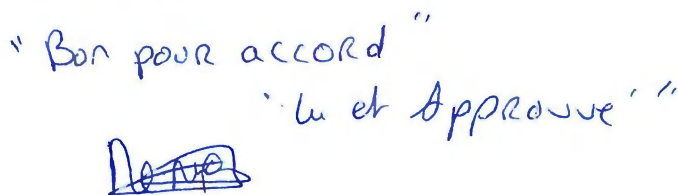 "Bon pour accord"
"lu et Approuvé"